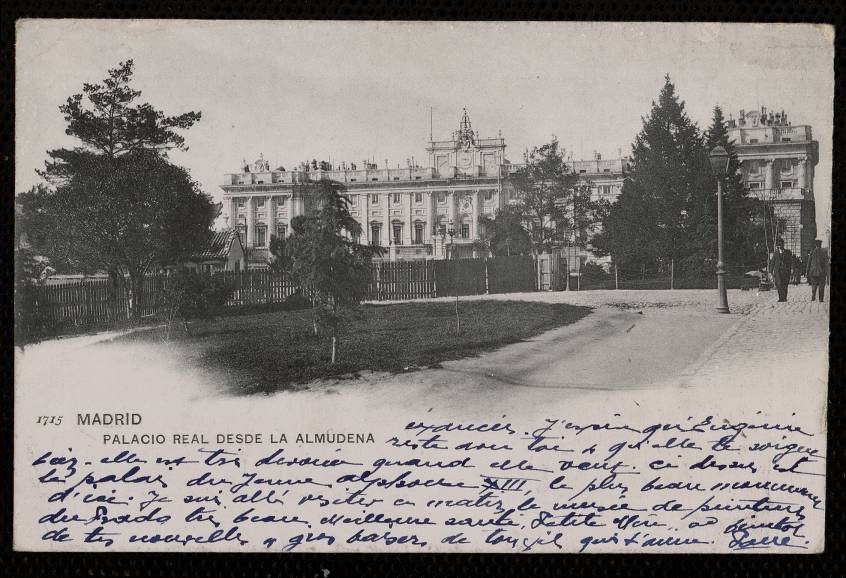 1715 MADRID
PALACIO REAL DESDE LA ALMUDENA
exaucés. J'espère qu'Eugénie
reste avec toi & qu'elle te soigne
bien. elle est très dévouée quand elle veut. ci dessus est
le palais du jeune alphonse XIII, le plus beau monument
d'ici. Je suis allé visiter ce matin le musée de peinture
du Prado très beau. Meilleure santé, Petite Mère, à bientôt
de tes nouvelles & gros baisers de ton fils qui t'aime.